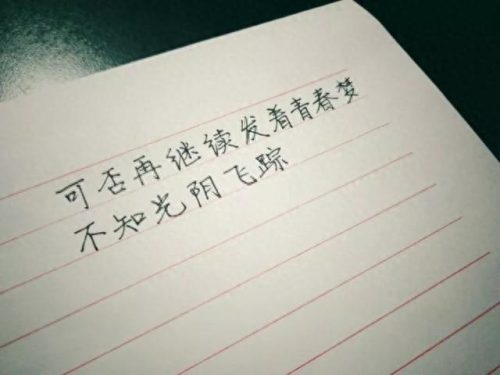 可否再继续发着青春梦
不知光阴飞踪